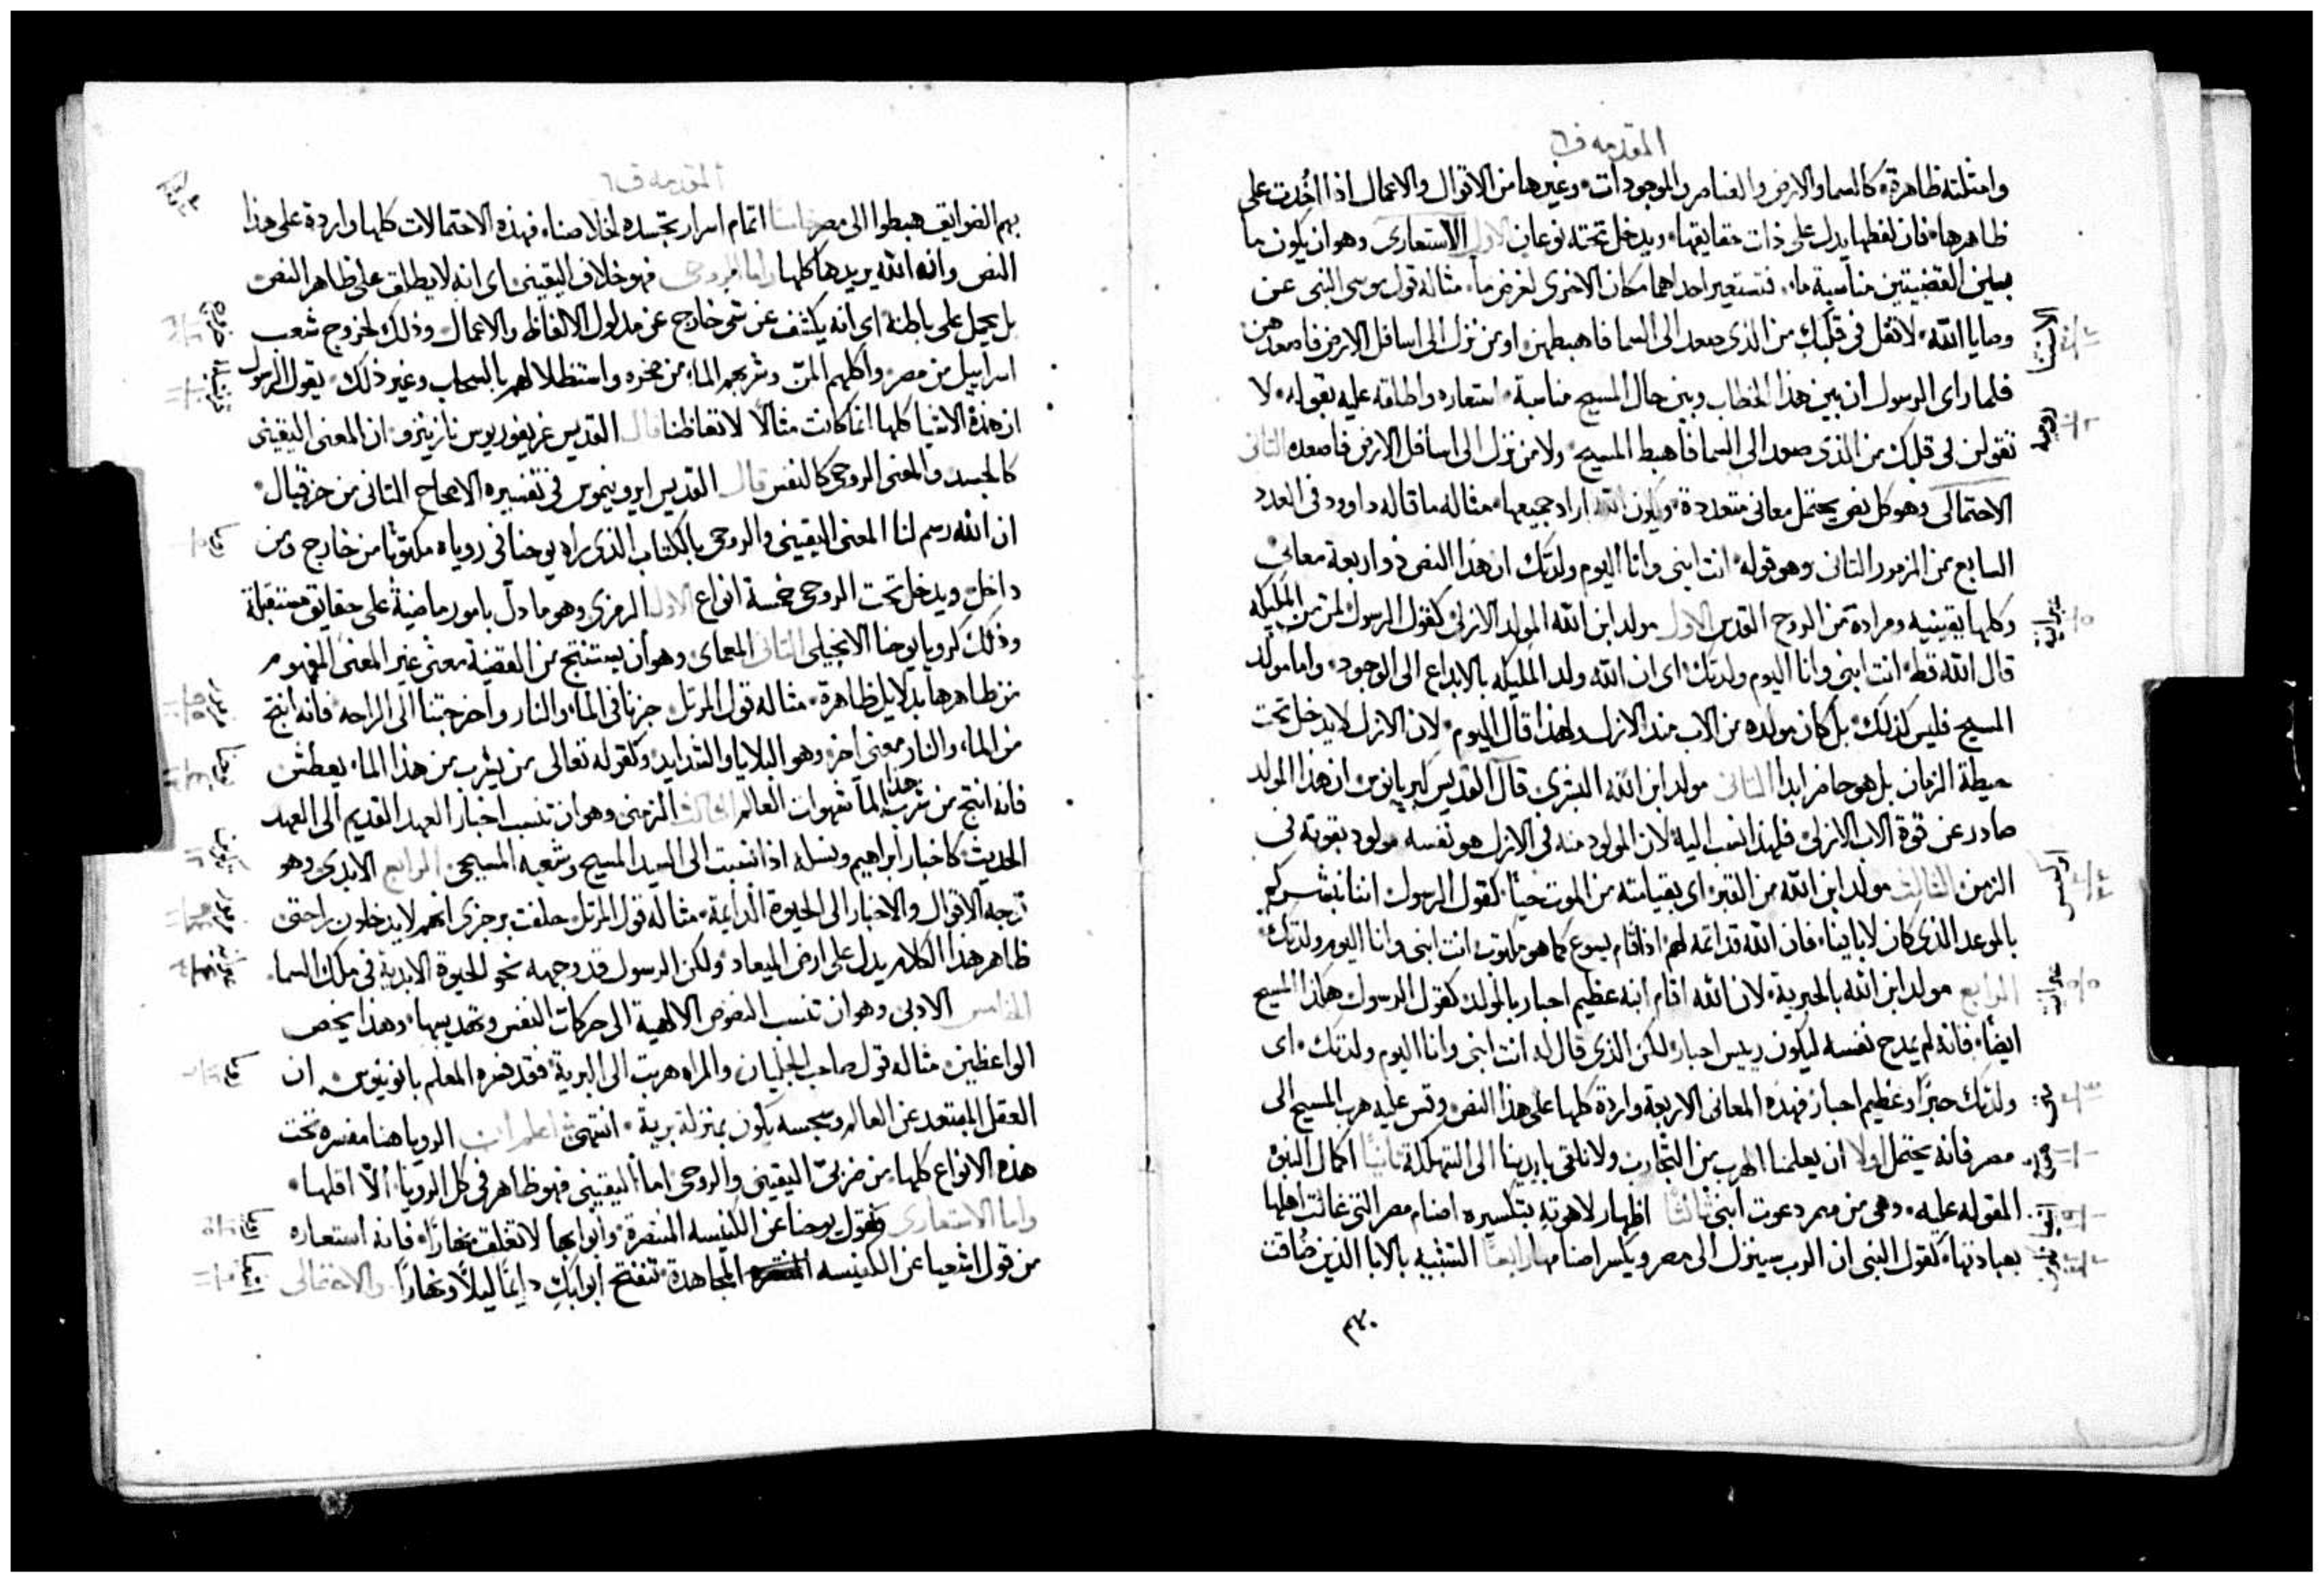 المقدمه ف٦
وامثلته ظاهرة، كالسما والارض والعناصر والموجودات، وغيرها من الاقوال والاعمال اذا اخدت على
ظاهرها، فان لفظها يدل على ذات حقايقها، ويدخل تحته نوعان الاول الاستعارى وهو ان يكون ما
بين القضيتين مناسبة ما، فتستعير احداهما مكان الاخرى لغرض ما، مثاله قول موسى النبى عن
وصايا الله، لا تقل فى قلبك من الذى صعد الى السما فاهبطهن، او من نزل الى اسافل الارض فاصعدهن
فلما راى الرسول ان بين هذا الخطاب وبين حال المسيح مناسبة، استعاره واطلقه عليه بقوله، لا
تقولن فى قلبك من الذى صعد الى السما فاهبط المسيح، ولا من نزل الى اسافل الارض فاصعده الثانى
الاحتمالى وهو كل نص يحتمل معانى متعددة، ويكون الله اراد جميعها، مثاله ما قاله داوود فى العدد
السابع من المزمور الثانى وهو قوله، انت ابنى وانا اليوم ولدتك ان هذا النص ذو اربعة معانى
وكلها يقينيه ومرادة من الروح القدس الاول مولد ابن الله المولد الازلى كقول الرسول لمن من المليكه
قال الله قط، انت ابنى وانا اليوم ولدتك، اى ان الله ولد المليكه بالابداع الى الوجود، واما مولد
المسيح فليس كذلك، بل كان مولده من الاب منذ الازل ولهذا قال اليوم، لان الازل لا يدخل تحت
حيطة الزمان بل هو حاضر ابدا الثانى مولد ابن الله البشرى قال القديس كبريانوس ان هذا المولد
صادر عن قوة الاب الازلى، فلهذا انسب اليه، لان المولود منه فى الازل هو نفسه مولود بقوته فى
الزمن الثالث مولد ابن الله من القبر، اى بقيامته من الموت حيًا، كقول الرسول اننا نبشركم
بالموعد الذى كان لابابينا، فان الله قد اتمه لهم، اذ اقام يسوع كما هو مكتوب انت ابنى وانا اليوم ولدتك
الرابع مولد ابن الله بالحبرية، لان الله اقام ابنه عظيم احبار بالمولد كقول الرسول هكذا المسيح
ايضا، فانه لم يمدح نفسه ليكون رييس احبار، لكن الذى قال له انت ابنى وانا اليوم ولدتك، اى
ولدتك حبرًا وعظيم احبار، فهذه المعانى الاربعة واردة كلها على هذا النص، وقس عليه هرب المسيح الى
مصر فانه يحتمل اولا ان يعلمنا الهرب من التجارب ولا نلقى بايدينا الى التهلكة ثانيًا اكمال النبوه
المقوله عليه، وهى من مصر دعوت ابنى ثالثًا اظهار لاهوته بتكسيره اصنام مصر التى غالت اهلها
بعبادتها، كقول النبى ان الرب سينزل الى مصر ويكسر اصنامها رابعًا التشبيه بالابا الذين ضاقت
الاستثنا
رومية
عبرانية
ابركسس
عبرانية
متى
المقدمه ف٦
بهم الضوايق هبطوا الى مصر خامسا اتمام اسرار تجسده لخلاصنا، فهذه الاحتمالات كلها واردة على هذا
النص وانه الله يريدها كلها واما الروحى فهو خلاف اليقينى، اى انه لا يطلق على ظاهر النص
بل يحمل على باطنه، اى انه يكشف عن شى خارج عن مدلول الالفاظ والاعمال، وذلك لخروج شعب
اسراييل من مصر، واكلهم المن وشربهم الماء من صخره واستظلالهم بالسحاب وغير ذلك، يقول الرسول
ان هذه الاشيا كلها انما كانت مثالًا لاتعاظنا قال القديس غريغوريوس نازينزو، ان المعنى اليقينى
كالجسد والمعنى الروحى كالنفس قال القديس ايرونيموس فى تفسيره الاصحاح الثانى من حزقيال،
ان الله رسم لنا المعنى اليقينى والروحى بالكتاب الذى راه يوحنا فى روياه مكتوبًا من خارج ومن
داخل، ويدخل تحت الروحى خمسة انواع الاول الرمزى وهو ما دل بامور ماضية على حقايق مستقبلة
وذلك كرويا يوحنا الانجيلى الثانى المعماى وهو ان يستنتج من القضية معنى غير المعنى المفهوم
من ظاهرها بدلايل ظاهرة، مثاله قول المرتل جزنا فى الماء والنار واخرجتنا الى الراحه، فانه انتج
من الماء والنار معنى اخر، وهو البلايا والشدايد، وكقوله تعالى من يشرب من هذا الماء يعطش
فانه انتج من شرب هذا الما شهوات العالم الثالث الزمنى وهو ان تنسب اخبار العهد القديم الى العهد
الحديث، كاخبار ابراهيم ونسله اذا نسبت الى السيد المسيح وشعبه المسيحى الرابع الابدى وهو
توجه الاقوال والاخبار الى الحيوة الدايمة، مثاله قول المرتل حلفت برجزى انهم لا يدخلون راحتى
ظاهر هذا الكلام يدل على ارض الميعاد، ولكن الرسول قد وجهه نحو الحيوة الابدية فى ملك السما،
الخامس الادبى وهو ان تنسب النصوص الالهية الى حركات النفس وتهذيبها، وهذا يخص
الواعظين، مثاله قول صاحب الجليان والمراه هربت الى البرية، فقد فسره المعلم بانونيوس، ان
العقل المبتعد عن العالم وسجسه يكون بمنزلة برية، انتهى اعلم ان الرويا هنا مفسره تحت
هذه الانواع كلها، من ضربى اليقينى والروحى، اما اليقينى فهو ظاهر فى كل الرويا، الا اقلها،
واما الاستعارى كقول يوحنا عن الكنيسه المنتصرة، وابوابها لا تغلق نهارًا، فانه استعاره
من قول اشعيا عن الكنيسه المجاهدة، تنفتح ابوابك دايمًا ليلًا ونهارًا والاحتمالى
قرنتيه
رويا
مزمور
يوحنا
تكوين
مزمور
عبرانيه
رويا
رويا
اشعيا